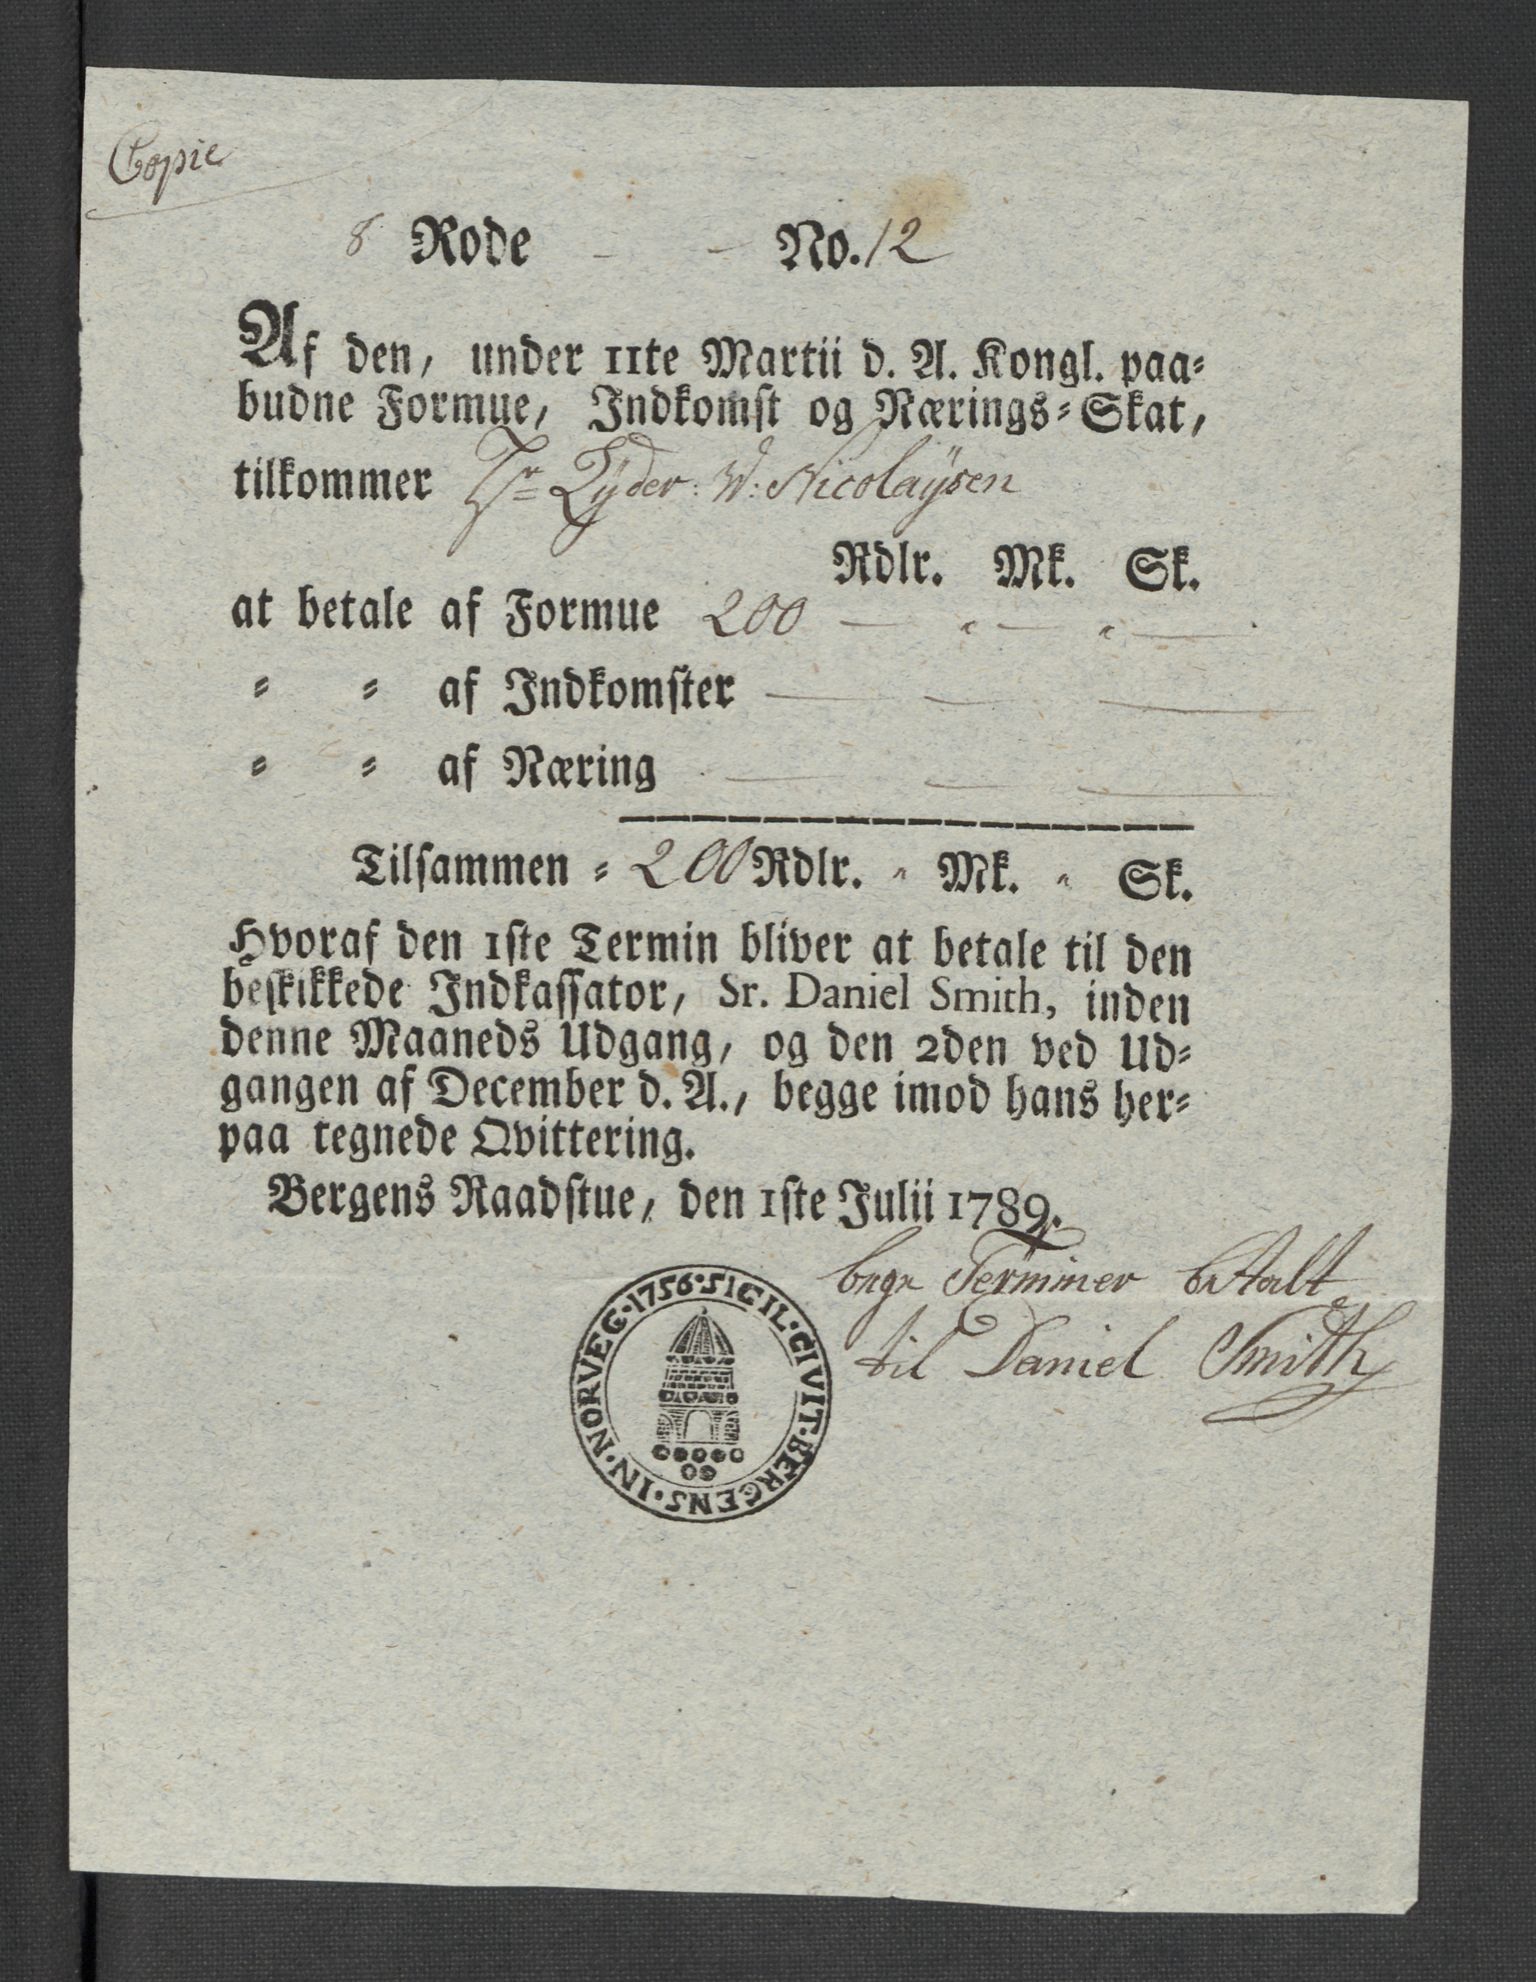 Copie
8 Rode - - No. 12
Af den, under 11te Martii d. A. Kongl. paa=
budne Formue, Indkomst og Nærings=Skat,
tilkommer Hr Lyder: W: Nicolaÿsen
Rdlr. Mk. Sk.
at betale af Formue 200 — " — " —
= = af Indkomster — — —
= = af Næring — — —
Tilsammen = 200 Rdlr. " Mk. " Sk.
Hvoraf den 1ste Termin bliver at betale til den
beskikkede Indkassator, Sr. Daniel Smith, inden
denne Maaneds Udgang, og den 2den ved Ud=
gangen af December d. A., begge imod hans her=
paa tegnede Qvittering.
Bergens Raadstue, den 1ste Julii 1789.
bege Terminer betalt
til Daniel Smith
1756 · SIGIL · CIVIT · BERGENS · IN · NORVEG ·